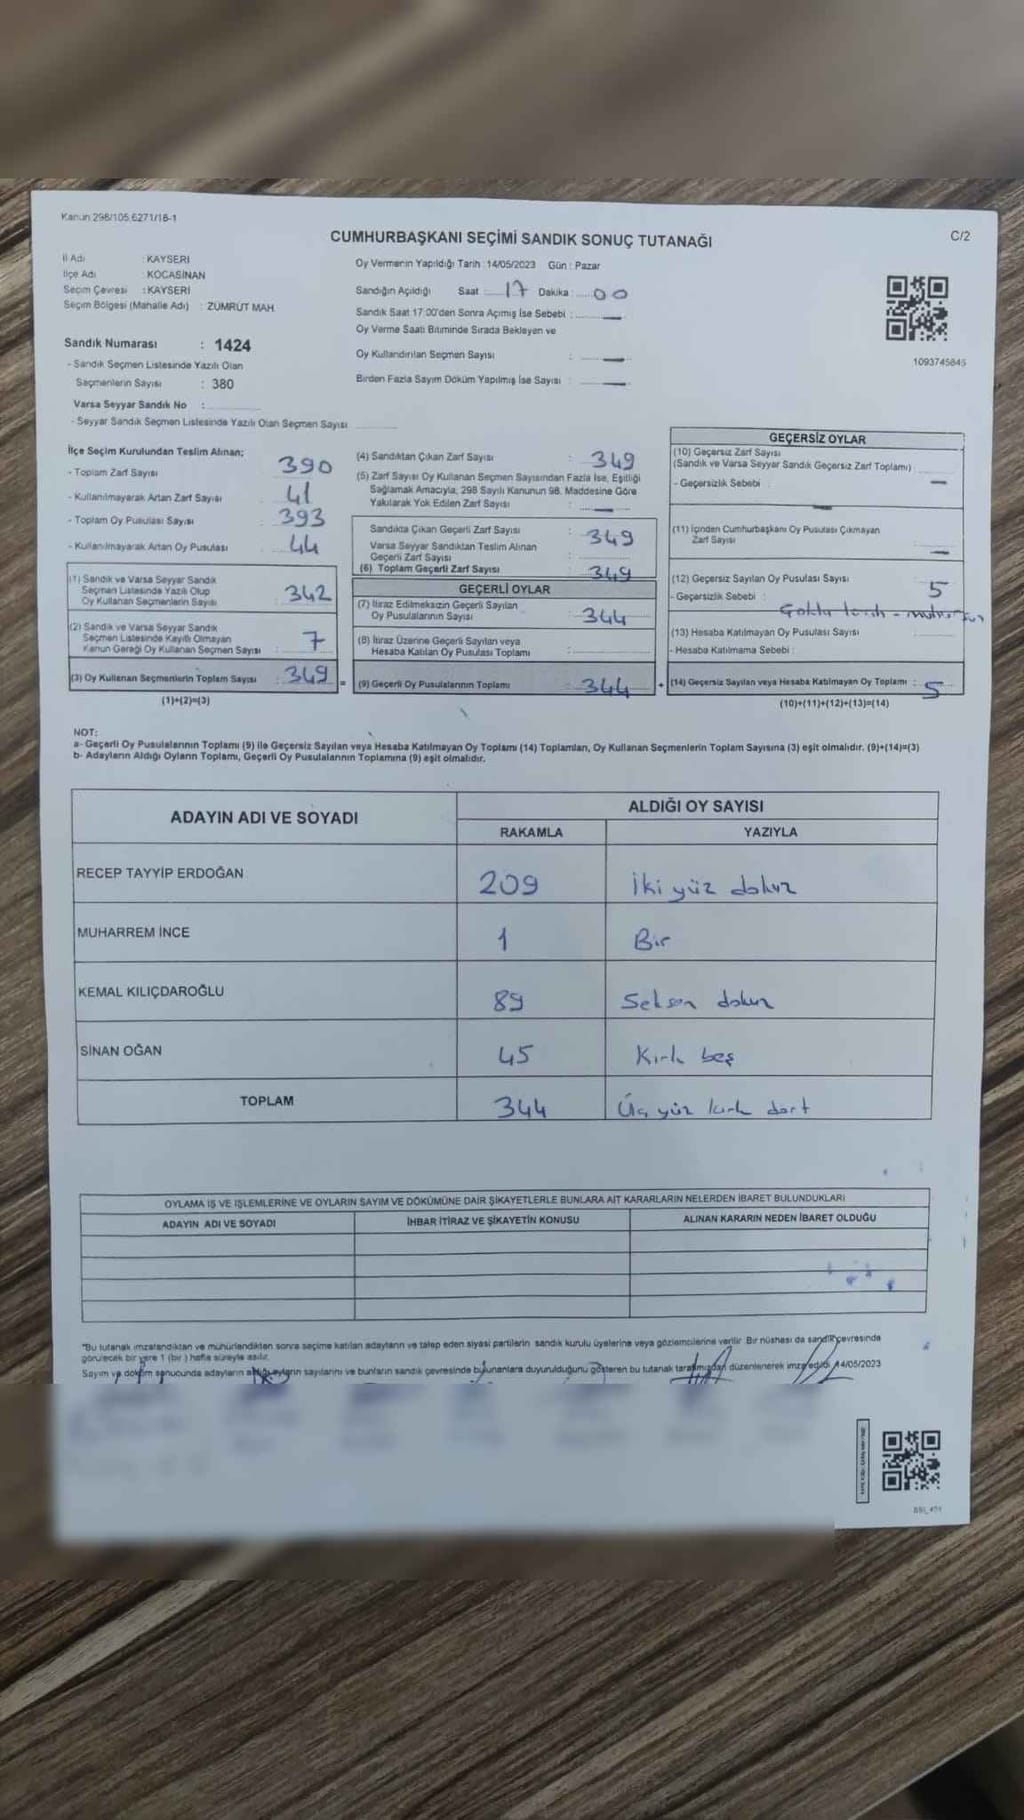 Kanun 298/105.6271/18-1
C/2
CUMHURBAŞKANI SEÇİMİ SANDIK SONUÇ TUTANAĞI
İl Adı : KAYSERİ
İlçe Adı : KOCASİNAN
Seçim Çevresi : KAYSERİ
Seçim Bölgesi (Mahalle Adı) : ZÜMRÜT MAH.
Sandık Numarası : 1424
- Sandık Seçmen Listesinde Yazılı Olan
Seçmenlerin Sayısı : 380
Varsa Seyyar Sandık No :
- Seyyar Sandık Seçmen Listesinde Yazılı Olan Seçmen Sayısı
Oy Vermenin Yapıldığı Tarih : 14/05/2023 Gün : Pazar
Sandığın Açıldığı Saat : 17 Dakika : 00
Sandık Saat 17:00'den Sonra Açmış İse Sebebi : —
Oy Verme Saati Bitiminde Sırada Bekleyen ve
Oy Kullandırılan Seçmen Sayısı : —
Birden Fazla Sayım Döküm Yapılmış İse Sayısı : —
1093745845
İlçe Seçim Kurulundan Teslim Alınan;
- Toplam Zarf Sayısı 390
- Kullanılmayarak Artan Zarf Sayısı 41
- Toplam Oy Pusulası Sayısı 393
- Kullanılmayarak Artan Oy Pusulası 44
(1) Sandık ve Varsa Seyyar Sandık
Seçmen Listesinde Yazılı Olup
Oy Kullanan Seçmenlerin Sayısı : 342
(2) Sandık ve Varsa Seyyar Sandık
Seçmen Listesinde Kayıtlı Olmayan
Kanun Gereği Oy Kullanan Seçmen Sayısı : 7
(3) Oy Kullanan Seçmenlerin Toplam Sayısı : 349 =
(1)+(2)=(3)
(4) Sandıktan Çıkan Zarf Sayısı : 349
(5) Zarf Sayısı Oy Kullanan Seçmen Sayısından Fazla İse, Eşitliği
Sağlamak Amacıyla, 298 Sayılı Kanunun 98. Maddesine Göre
Yakılarak Yok Edilen Zarf Sayısı : —
Sandıkta Çıkan Geçerli Zarf Sayısı : 349
Varsa Seyyar Sandıktan Teslim Alınan
Geçerli Zarf Sayısı :
(6) Toplam Geçerli Zarf Sayısı : 349
GEÇERLİ OYLAR
(7) İtiraz Edilmeksizin Geçerli Sayılan
Oy Pusulalarının Sayısı : 344
(8) İtiraz Üzerine Geçerli Sayılan veya
Hesaba Katılan Oy Pusulası Toplamı :
(9) Geçerli Oy Pusulalarının Toplamı : 344 +
GEÇERSİZ OYLAR
(10) Geçersiz Zarf Sayısı
(Sandık ve Varsa Seyyar Sandık Geçersiz Zarf Toplamı)
- Geçersizlik Sebebi : —
(11) İçinden Cumhurbaşkanı Oy Pusulası Çıkmayan
Zarf Sayısı —
(12) Geçersiz Sayılan Oy Pusulası Sayısı : 5
- Geçersizlik Sebebi :
(13) Hesaba Katılmayan Oy Pusulası Sayısı :
- Hesaba Katılmama Sebebi :
(14) Geçersiz Sayılan veya Hesaba Katılmayan Oy Toplamı : 5
(10)+(11)+(12)+(13)=(14)
NOT:
a- Geçerli Oy Pusulalarının Toplamı (9) ile Geçersiz Sayılan veya Hesaba Katılmayan Oy Toplamı (14) Toplamları, Oy Kullanan Seçmenlerin Toplam Sayısına (3) eşit olmalıdır. (9)+(14)=(3)
b- Adayların Aldığı Oyların Toplamı, Geçerli Oy Pusulalarının Toplamına (9) eşit olmalıdır.
ADAYIN ADI VE SOYADI ALDIĞI OY SAYISI
RAKAMLA YAZIYLA
RECEP TAYYİP ERDOĞAN 209 İki yüz dokuz
MUHARREM İNCE 1 Bir
KEMAL KILIÇDAROĞLU 89 Seksen dokuz
SİNAN OĞAN 45 Kırk beş
TOPLAM 344 Üç yüz kırk dört
OYLAMA İŞ VE İŞLEMLERİNE VE OYLARIN SAYIM VE DÖKÜMÜNE DAİR ŞİKAYETLERLE BUNLARA AİT KARARLARIN NELERDEN İBARET BULUNDUKLARI
ADAYIN ADI VE SOYADI İHBAR İTİRAZ VE ŞİKAYETİN KONUSU ALINAN KARARIN NEDEN İBARET OLDUĞU
"Bu tutanak imzalandıktan ve mühürlendikten sonra seçime katılan adayların ve talep eden siyasi partilerin sandık kurulu üyelerine veya gözlemcilerine verilir. Bir nüshası da sandık çevresinde
görülecek bir yere 1 (bir) hafta süreyle asılır.
Sayım ve döküm sonucunda adayların aldığı oyların sayılarını ve bunların sandık çevresinde bulunanlara duyurulduğunu gösteren bu tutanak tarafımızdan düzenlenerek imzalandı. 14/05/2023